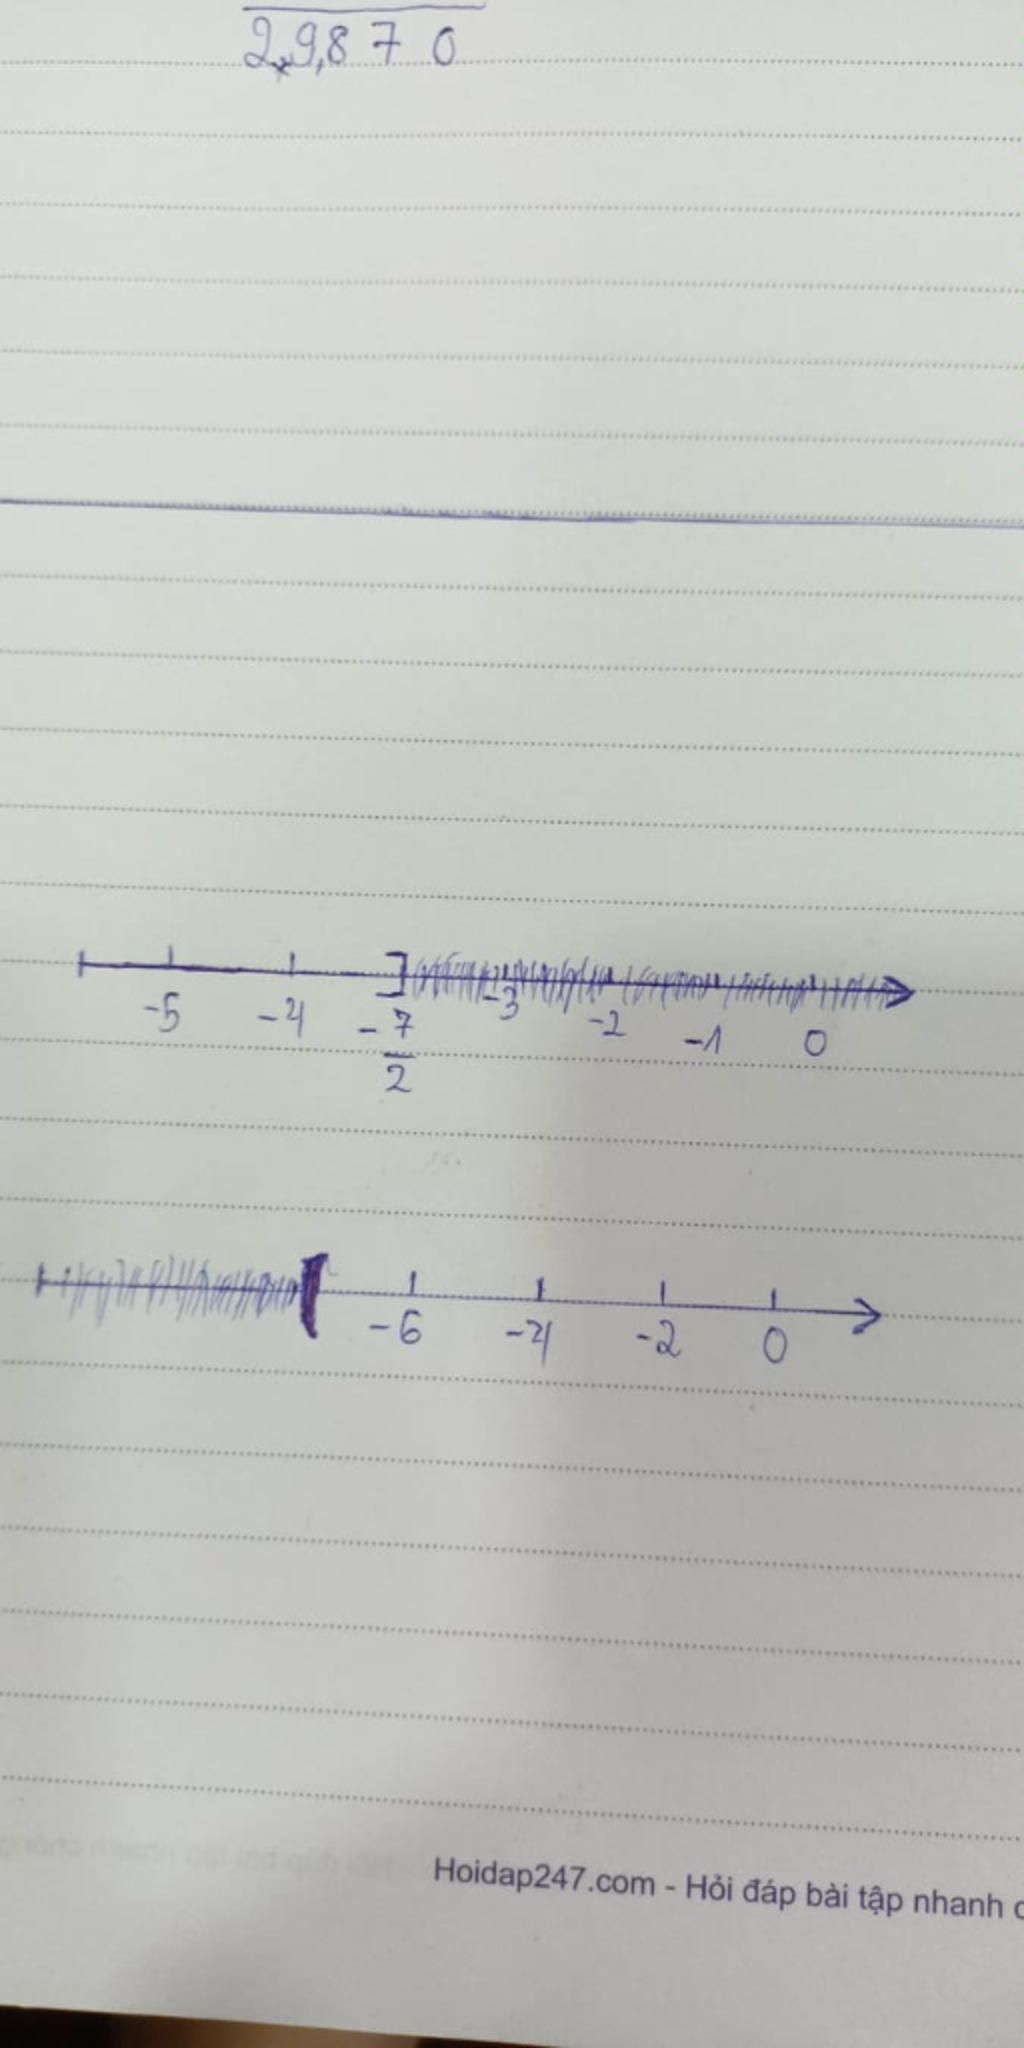 29,870
]
-5 -4 -7/2 -3 -2 -1 0
-6 -4 -2 0
Hoidap247.com - Hỏi đáp bài tập nhanh